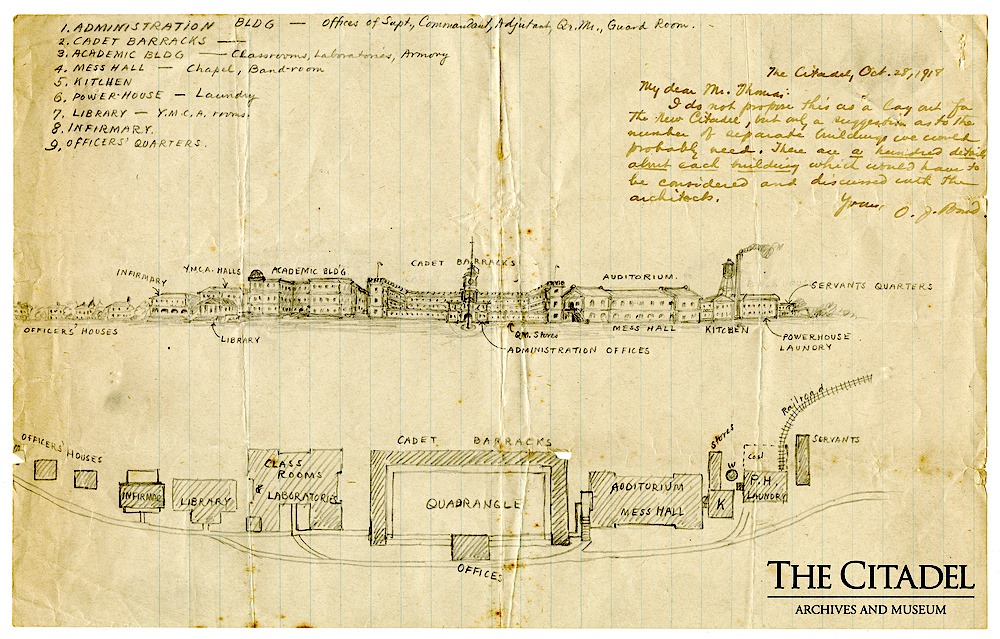 1. ADMINISTRATION BLDG — Offices of Supt., Commandant, Adjutant, Qr. Mr., Guard Room.
2. CADET BARRACKS —
3. ACADEMIC BLDG — Classrooms, Laboratories, Armory
4. MESS HALL — Chapel, Band-room
5. KITCHEN
6. POWER-HOUSE — Laundry
7. LIBRARY — Y.M.C.A. rooms.
8. INFIRMARY.
9. OFFICERS' QUARTERS.
The Citadel, Oct. 28, 1918
My dear Mr. Thomas:
I do not propose this as a lay out for
the New Citadel, but only a suggestion as to the
number of separate buildings we would
probably need. There are a hundred details
about each building which would have to
be considered and discussed with the
architects.
Yours, O. J. Bond.
INFIRMARY
Y.M.C.A. HALLS
ACADEMIC BLD'G
CADET BARRACKS
AUDITORIUM.
SERVANTS QUARTERS
OFFICERS' HOUSES
LIBRARY
Q.M. Stores
ADMINISTRATION OFFICES
MESS HALL
KITCHEN
POWERHOUSE
LAUNDRY
Railroad
OFFICERS' HOUSES
CADET BARRACKS
Stores
SERVANTS
CLASS
ROOMS
& LABORATORIES
Coal
W
P.H.
LAUNDRY
INFIRMARY
LIBRARY
QUADRANGLE
AUDITORIUM
MESS HALL
K
OFFICES
THE CITADEL
ARCHIVES AND MUSEUM